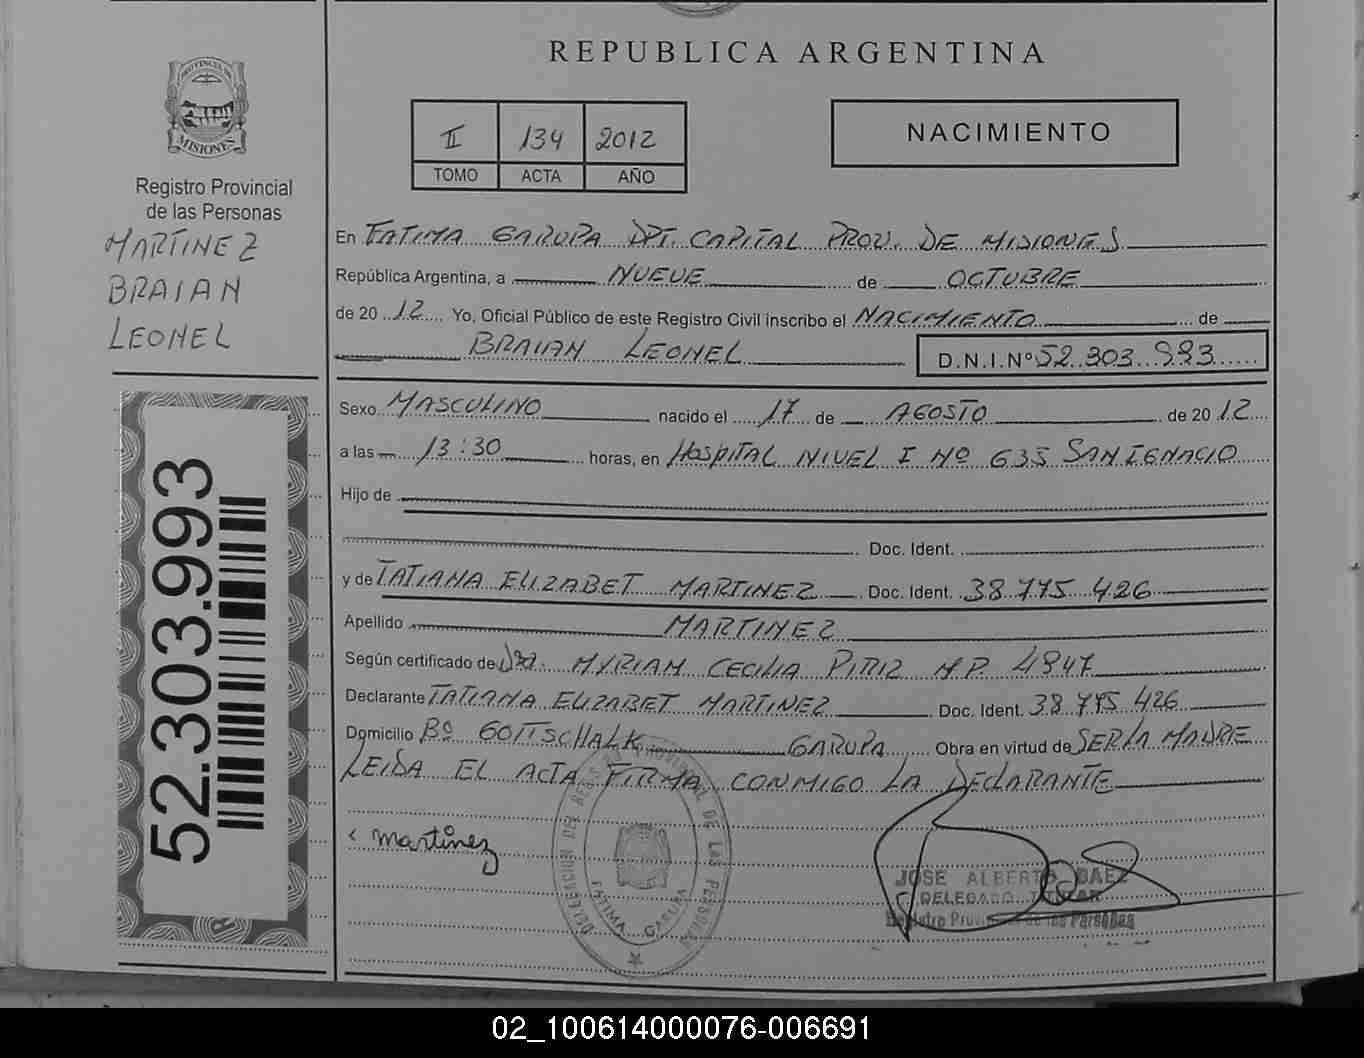 REPUBLICA ARGENTINA
PROVINCIA DE
MISIONES
Registro Provincial
de las Personas
MARTINEZ
BRAIAN
LEONEL
52.303.993
II 134 2012
TOMO ACTA AÑO
NACIMIENTO
En FATIMA GARUPA DPT. CAPITAL PROV. DE MISIONES
República Argentina, a NUEVE de OCTUBRE
de 20 12 Yo, Oficial Público de este Registro Civil inscribo el NACIMIENTO de
BRAIAN LEONEL D.N.I.Nº 52.303.993
Sexo MASCULINO nacido el 17 de AGOSTO de 20 12
a las 13:30 horas, en HOSPITAL NIVEL I Nº 635 SAN IGNACIO
Hijo de
Doc. Ident.
y de TATIANA ELIZABET MARTINEZ Doc. Ident. 38.775.426
Apellido MARTINEZ
Según certificado de Dra. MYRIAM CECILIA PIRIZ M.P. 4847
Declarante TATIANA ELIZABET MARTINEZ Doc. Ident. 38.775.426
Domicilio Bº GOTTSCHALK GARUPA Obra en virtud de SER LA MADRE
LEIDA EL ACTA FIRMA CONMIGO LA DECLARANTE
martinez
DELEGACION DEL REGISTRO PROVINCIAL DE LAS PERSONAS
FATIMA GARUPA
JOSE ALBERTO BAEZ
DELEGADO TITULAR
Registro Provincial de las Personas
02_100614000076-006691